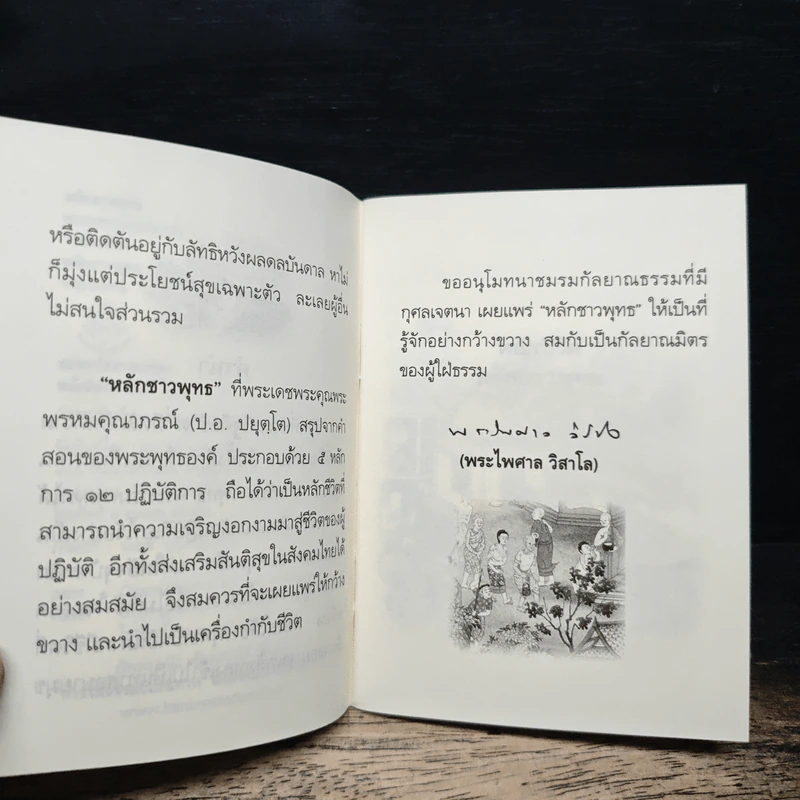 หรือติดตันอยู่กับลัทธิหวังผลดลบันดาล หาไม่
ก็มุ่งแต่ประโยชน์สุขเฉพาะตัว ละเลยผู้อื่น
ไม่สนใจส่วนรวม
“หลักชาวพุทธ” ที่พระเดชพระคุณพระ
พรหมคุณาภรณ์ (ป.อ. ปยุตฺโต) สรุปจากคำ
สอนของพระพุทธองค์ ประกอบด้วย ๕ หลัก
การ ๑๒ ปฏิบัติการ ถือได้ว่าเป็นหลักชีวิตที่
สามารถนำความเจริญงอกงามมาสู่ชีวิตของผู้
ปฏิบัติ อีกทั้งส่งเสริมสันติสุขในสังคมไทยได้
อย่างสมสมัย จึงสมควรที่จะเผยแพร่ให้กว้าง
ขวาง และนำไปเป็นเครื่องกำกับชีวิต
ขออนุโมทนาชมรมกัลยาณธรรมที่มี
กุศลเจตนา เผยแพร่ “หลักชาวพุทธ” ให้เป็นที่
รู้จักอย่างกว้างขวาง สมกับเป็นกัลยาณมิตร
ของผู้ใฝ่ธรรม
(พระไพศาล วิสาโล)